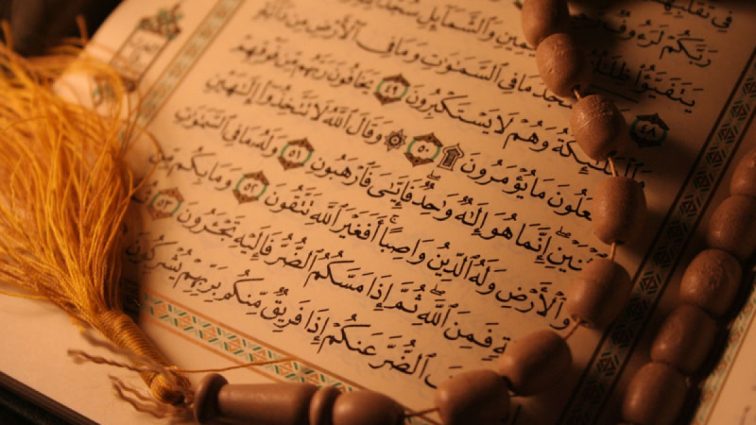 فِي تَقَلُّبِهِمْ
رَبَّكُمْ لَرَءُوفٌ
يَتَفَيَّؤُا۟ ظِلَٰلُهُۥ ٱلْيَمِينِ وَٱلشَّمَآئِلِ سُجَّدًا
٤٨ يَسْجُدُ مَا فِى ٱلسَّمَٰوَٰتِ وَمَا فِى ٱلْأَرْضِ مِن دَآبَّةٍ
وَٱلْمَلَٰٓئِكَةُ وَهُمْ لَا يَسْتَكْبِرُونَ ٤٩ يَخَافُونَ رَبَّهُم مِّن فَوْقِهِمْ
وَيَفْعَلُونَ مَا يُؤْمَرُونَ ۩ ٥٠ ۞ وَقَالَ ٱللَّهُ لَا تَتَّخِذُوٓا۟ إِلَٰهَيْنِ
ٱثْنَيْنِ ۖ إِنَّمَا هُوَ إِلَٰهٌ وَٰحِدٌ ۖ فَإِيَّٰىَ فَٱرْهَبُونِ ٥١ وَلَهُۥ مَا فِى ٱلسَّمَٰوَٰتِ
وَٱلْأَرْضِ وَلَهُ ٱلدِّينُ وَاصِبًا ۚ أَفَغَيْرَ ٱللَّهِ تَتَّقُونَ ٥٢ وَمَا بِكُم مِّن
فَمِنَ ٱللَّهِ ۖ ثُمَّ إِذَا مَسَّكُمُ ٱلضُّرُّ فَإِلَيْهِ تَجْـَٔرُونَ ٥٣
ٱلضُّرَّ عَنكُمْ إِذَا فَرِيقٌ مِّنكُم بِرَبِّهِمْ يُشْرِكُونَ